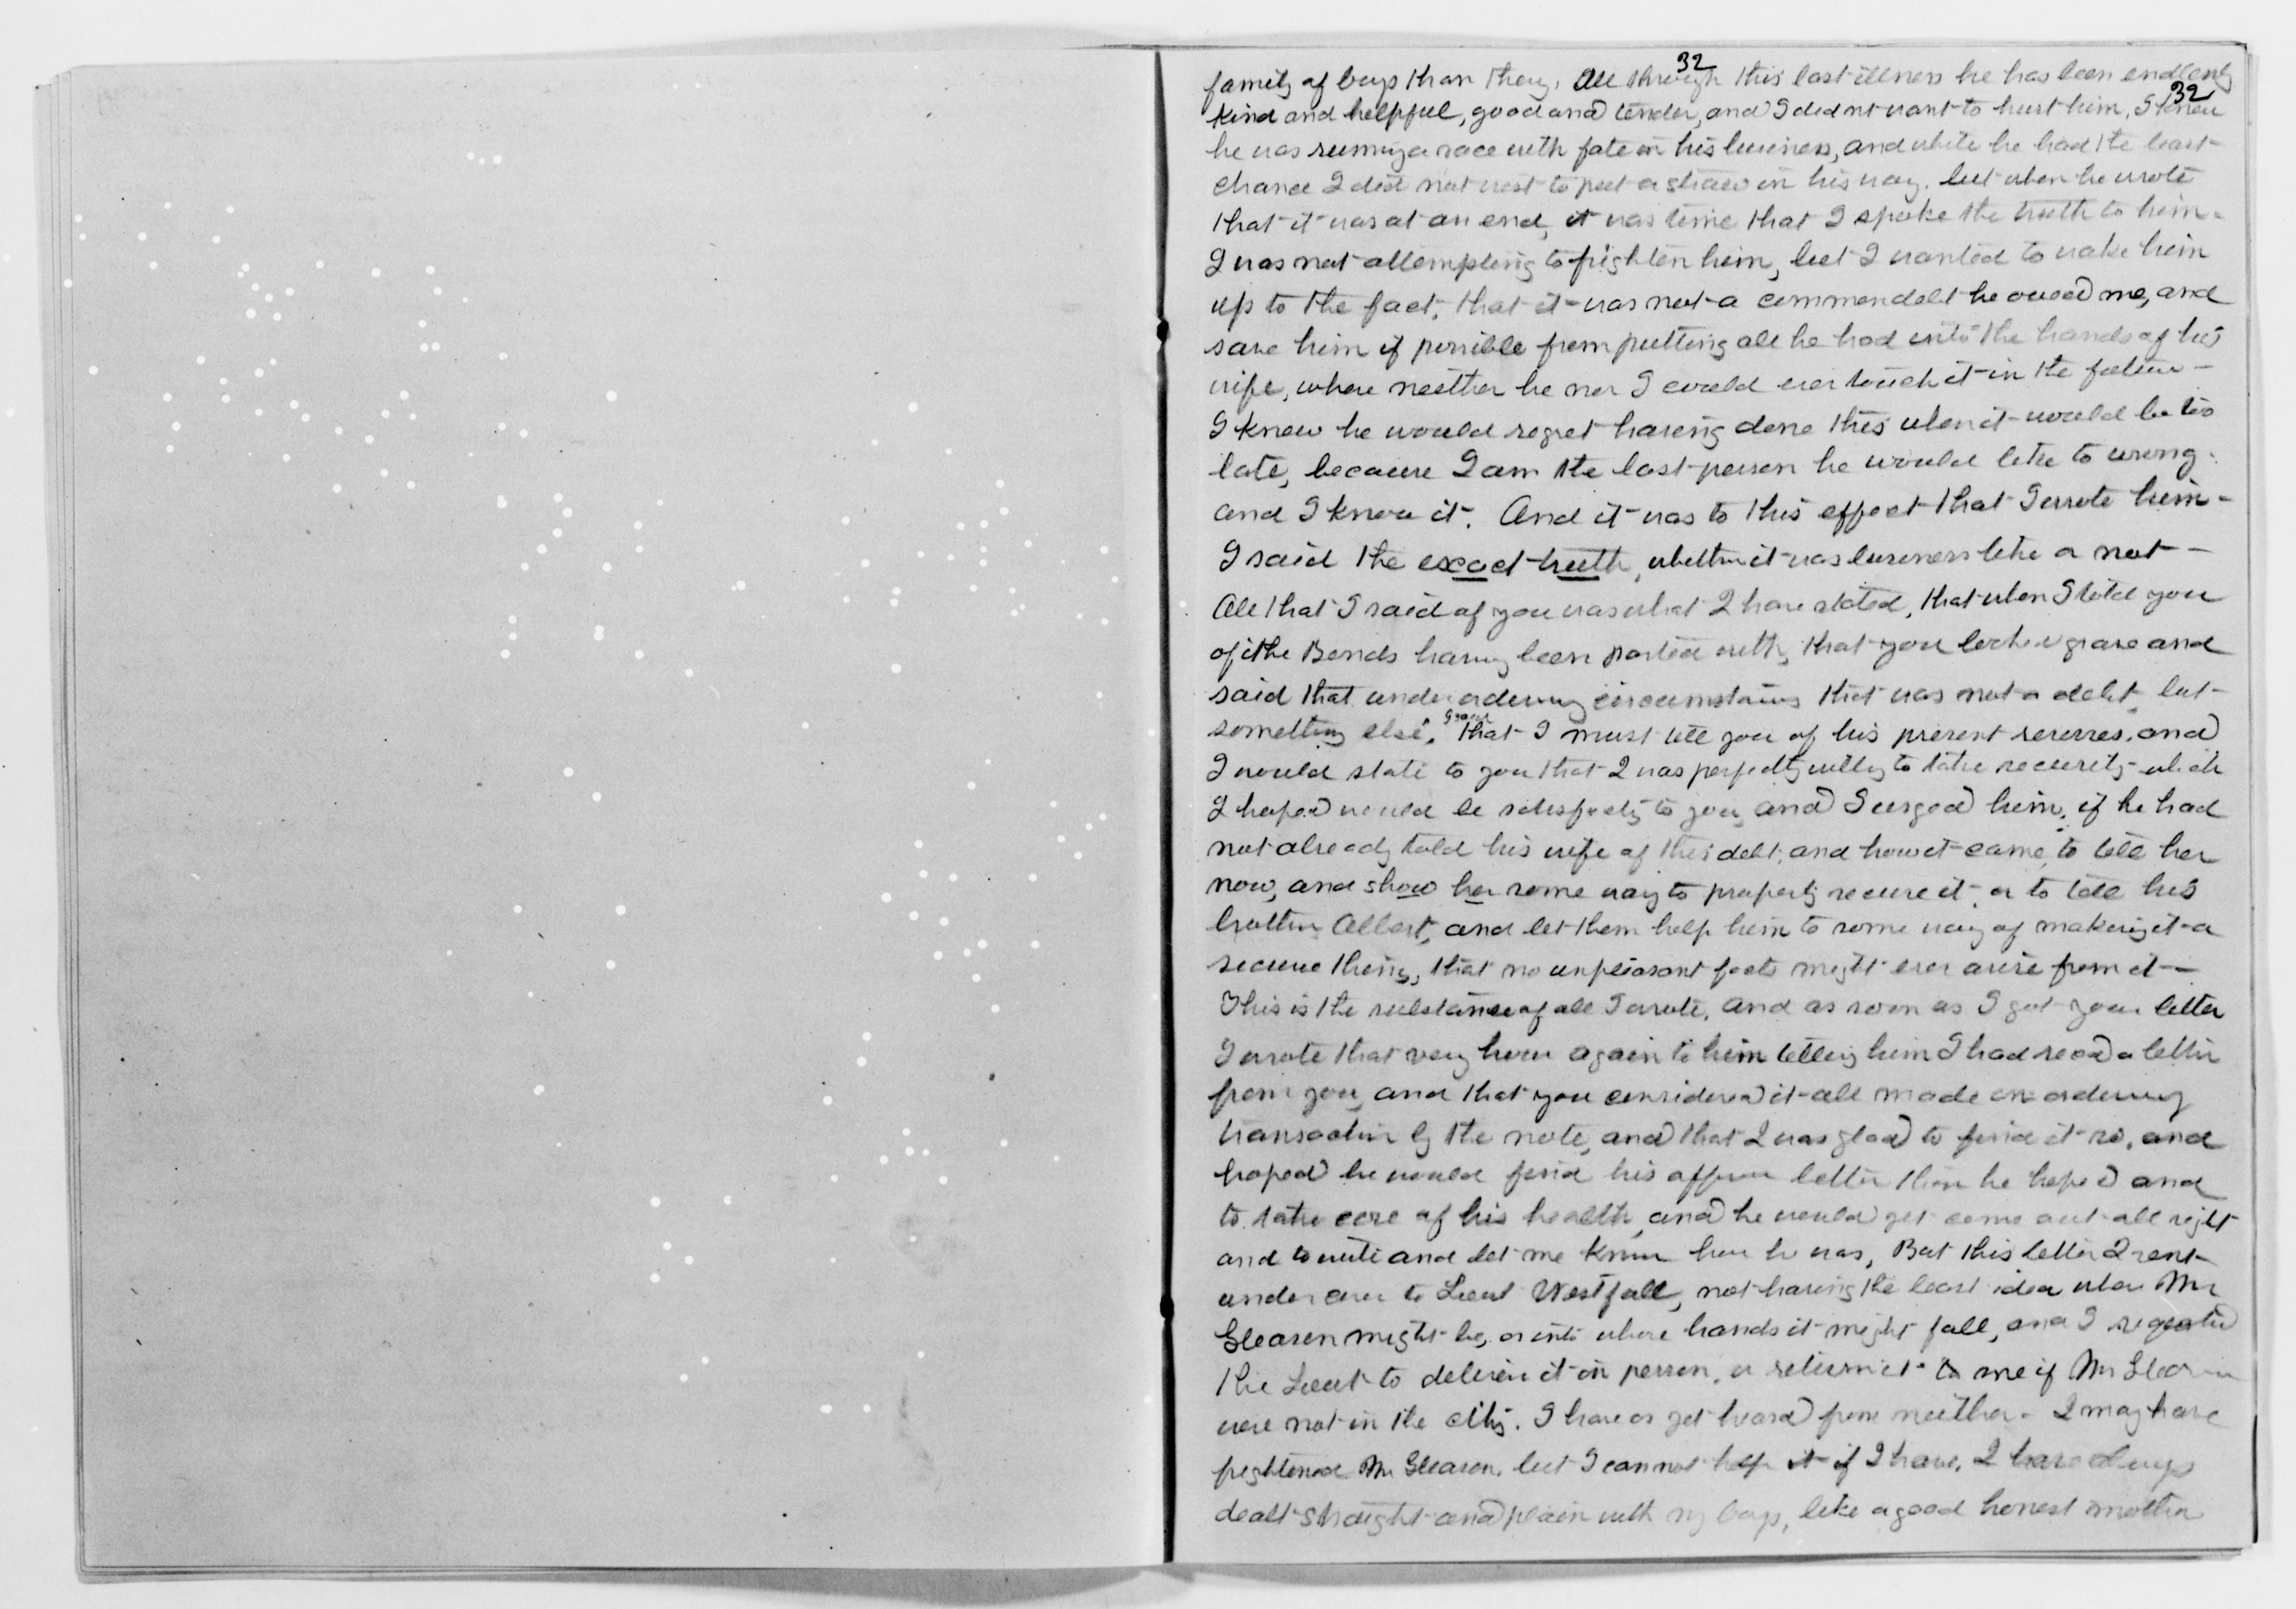 32
family of boys than they. All through this last illness he has been endlessly
32
kind and helpful, good and tender, and I did nt want to hurt him, I knew
he was running a race with fate in his business, and while he had the least
chance I did not wish to put a straw in his way. but when he wrote
that it was at an end, it was time that I spoke the truth to him-
I was not attempting to frighten him, but I wanted to wake him
up to the fact, that it was not a common debt he owed me, and
save him if possible from putting all he had into the hands of his
wife, where neither he nor I could ever touch it in the future -
I knew he would regret having done this when it would be too
late, because I am the last person he would like to wrong.
and I know it. And it was to this effect that I wrote him-
I said the exact truth, whether it was business like or not -
All that I said of you was what I have stated, that when I told you
of the Bonds having been parted with, that you looked grave and
said that under ordinary circumstances that was not a debt but
something else, that I must tell you of his present reverses, and
I would state to you that I was perfectly willing to take security which
I hoped would be satisfactory to you, and I urged him, if he had
not already told his wife of this debt, and how it came, to tell her
now, and show her some way to properly secure it, or to tell his
brother Albert, and let them help him to some way of making it a
secure thing, that no unpleasant facts might ever arise from it -
This is the substance of all I wrote, and as soon as I got your letter
I wrote that very hour again to him telling him I had recd a letter
from you, and that you considered it all made an ordinary
transaction by the note, and that I was glad to find it so, and
hoped he would find his affairs better than he hoped and
to take care of his health, and he would yet come out all right
and to write and let me know how he was, But this letter I sent
under cover to Lieut Westfall, not having the least idea where Mr
Gleason might be, or into whose hands it might fall, and I requested
the Lieut to deliver it in person, or return it to me if Mr Gleason
were not in the city. I have as yet heard from neither - I may have
frightened Mr Gleason, but I cannot help it if I have, I have always
dealt straight and plain with my boys, like a good honest mother